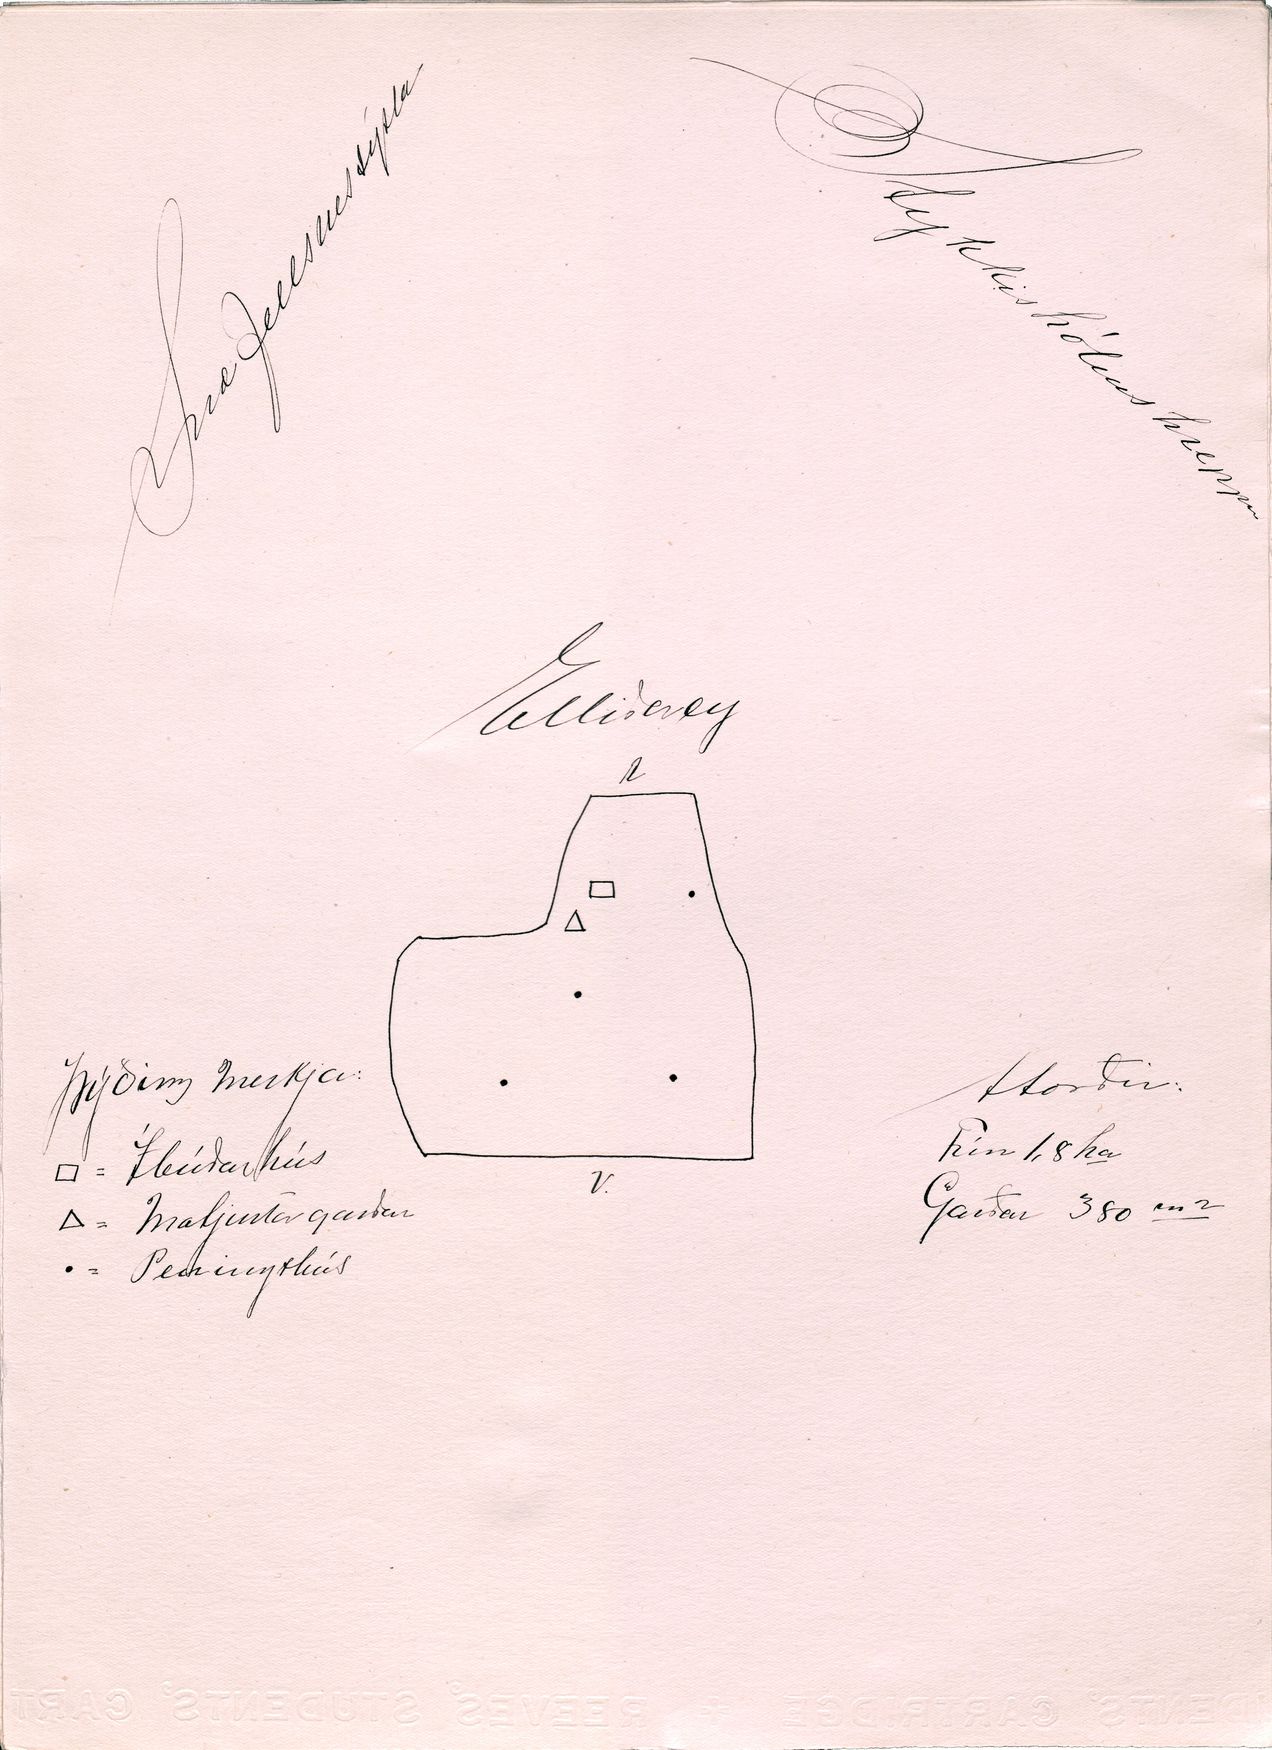 Snæfellsnessýsla
Stykkishólmshreppur
Elliðaey
V.
Þýðing merkja:
□ = Íbúðarhús
△ = Matjurtargarðar
• = Peningshús
Stærðir:
Tún 1,8 ha
Garðar 380 m²
REEVES' STUDENTS' CART
DENTS' CARTRIDGE